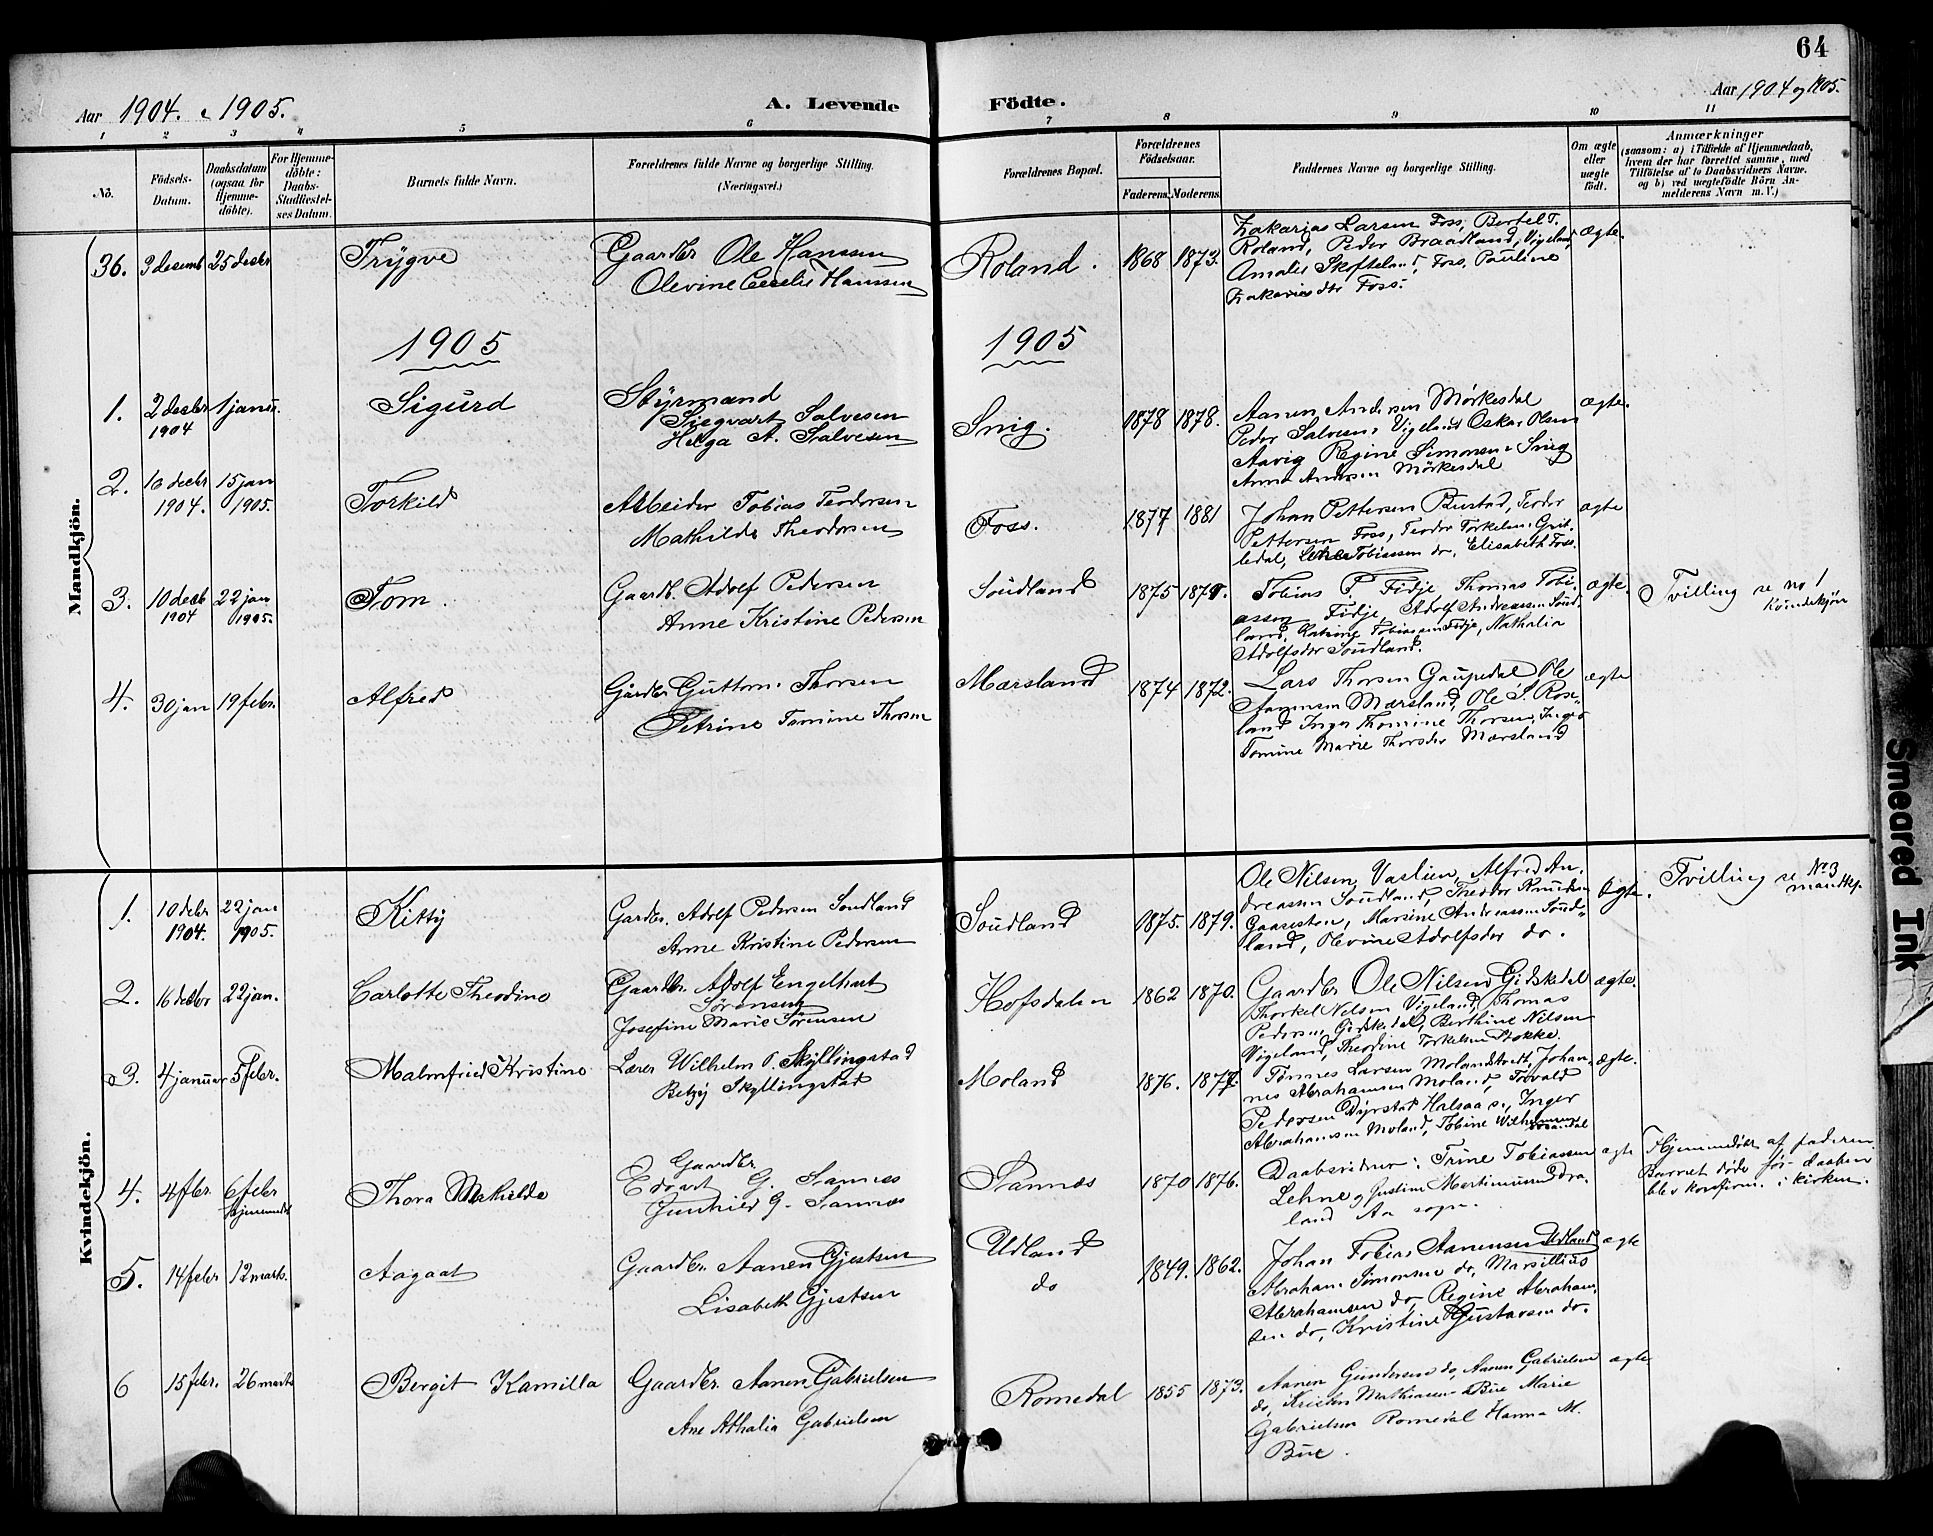 64
Aar 1904. & 1905.
A. Levende Födte.
Aar 1904 og 1905.
1 2 3 4 5 6 7 8 9 10 11
No.
Födsels-
Datum.
Daabsdatum
(ogsaa for
Hjemme-
döbte).
For Hjemme-
döbte:
Daabs-
Stadfæstel-
ses Datum.
Barnets fulde Navn.
Forældrenes fulde Navne og borgerlige Stilling.
(Næringsvei.)
Forældrenes Bopæl.
Forældrenes
Födselsaar.
Faderens. Moderens.
Faddernes Navne og borgerlige Stilling.
Om ægte
eller
uægte
födt.
Anmærkninger
(saasom: a) i Tilfælde af Hjemmedaab,
hvem der har forrettet samme, med
Tilföielse af to Daabsvidners Navne.
og b) ved uægtefödte Börn An-
melderens Navn m. V.)
Mandkjön.
36. 3 desemb 25 desbr Trygve
Gaardbr Ole Hanssen
Olevine Cecelie Hanssen
Roland. 1868 1873.
Zakarias Larsen Foss, Bertel T.
Roland, Peder Braadland, Vigeland
Amalie Skofteland, Foss, Pauline
Zakariasdtr Foss.
ægte.
1905 1905
1. 2 desbr 1 janur.
1904
Sigurd
Styrmand
Siegvart Salvesen
Helga A. Salvesen
Snig. 1878 1878.
Aanen Andersen Mörkesdal
Peder Salvesen Vigeland Oskar Olsen
Aavig Regine Simonsen Snig
Anna Andersen Mörkesdal
ægte.
2. 10 decbr 15 jan
1904. 1905.
Torkild
Arbeider Tobias Teodorsen
Mathilde Theodorsen
Foss. 1877 1881
Johan Pettersen Bustad, Teodor
Pettersen Foss, Teodor Torkelsen
ledal, Tobiassen do, Elisabeth Foss.
ægte
3. 10 decb 22 jan
1904 1905.
Tom.
Gaardb. Adolf Pedersen
Anne Kristine Pedersen
Soudland 1875 1879.
Tobias P. Fidje, Thomas Tobi-
assen Fidje, Adolf Andreassen Soud-
land, Katrine Tobiassen Fidje, Nathalia
Adolfsdtr Soudland.
ægte.
Tvilling se no 1
kvindekjön
4. 30 jan 19 febr. Alfred
Gårdbr Guttorm Thorsen
Petrine Tomine Thorsen
Mærsland 1874 1872.
Lars Thorsen Gaupedal Ole
Aanensen Mærsland, Ole S. Rose-
land Inger Thomine Thorsen, Inger
Tomine Marie Thorsdtr Mærsland
ægte
Kvindekjön.
1. 10 debr 22 jan
1904. 1905.
Kitty
Gardbr. Adolf Pedersen Soudland
Anne Kristine Pedersen
Soudland 1875. 1879.
Ole Nilsen Vaslien, Alfred An-
dreassen Soudland, Theodor Knudsen
Gaaseston, Marsine Andreassen Soud-
land, Olevine Adolfsdtr do.
ægte.
Tvilling se No 3
mandkj.
2. 16 decbr 22 jan. Carlotte Theodine
Gaardbr. Adolf Engelhart
Sörensen
Josefine Marie Sörensen
Hofsdalen 1862 1870.
Gaardbr Ole Nilsen Gidskedal
Thorkel Nilsen Vigeland, Thomas
Pedersen, Gidskedal, Berthine Nilsen
Vigeland, Theodine Torkelsen Stokke.
ægte.
3. 4 januar 5 febr. Malmfried Kristine
Lærer Wilhelm O. Skyllingstad
Betzy Skyllingstad
Moland 1876. 1877.
Tönnes Larsen Moland, Johan-
nes Abrahamsen Moland, Torvald
Pedersen Dyrstad Halsaa s., Inger
Abrahamsen Moland, Tobine Wilhelmsen
ægte.
4. 4 febr. 6 febr
hjemmedöbt
Thora Mathilde
Gaardbr
Edvart G. Stannes
Gunhild G. Stannes
Stannes 1870 1876.
Daabsvidner: Trine Tobiassen
Lehne og Gustine Martinusen Dra-
land Aa sogn.
ægte
Hjemmedöbt af faderen
Barnet döde för daaben
blev konfirm. i kirken.
5. 14 febr 12 marts. Aagaat
Gaardbr. Aanen Gjestsen
Lisabeth Gjestsen
Udland
do
1849. 1862.
Johan Tobias Aanensen Udland
Abraham Simonsen do, Marsilius
Abrahamsen do, Regine Abraham-
sen do, Kristine Gustavsen do.
ægte
6 15 febr. 26 marts Bergit Kamilla
Gaardbr. Aanen Gabrielsen
Ane Athalia Gabrielsen
Romedal 1855 1873.
Aanen Gundersen do, Aanen Gabrielsen
do, Kristen Mathiasen Bue Marie
Gabrielsen Romedal Hanna M.
Bue.
ægte
Smeared Ink